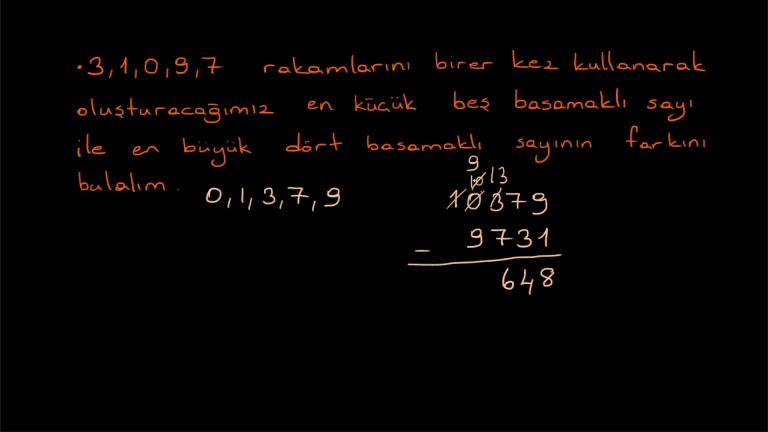 • 3, 1, 0, 9, 7 rakamlarını birer kez kullanarak
oluşturacağımız en küçük beş basamaklı sayı
ile en büyük dört basamaklı sayının farkını
bulalım.
0, 1, 3, 7, 9
9
10 13
10379
- 9731
648